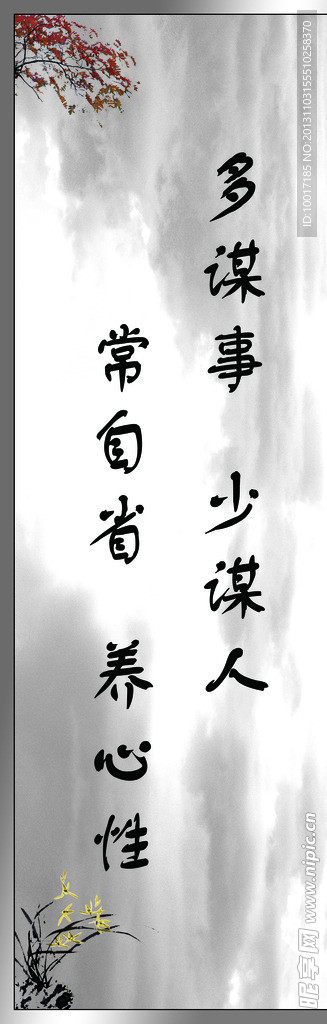 多谋事 少谋人
常自省 养心性
ID:10017185 NO:20131103155510258370
昵享网 www.nipic.cn